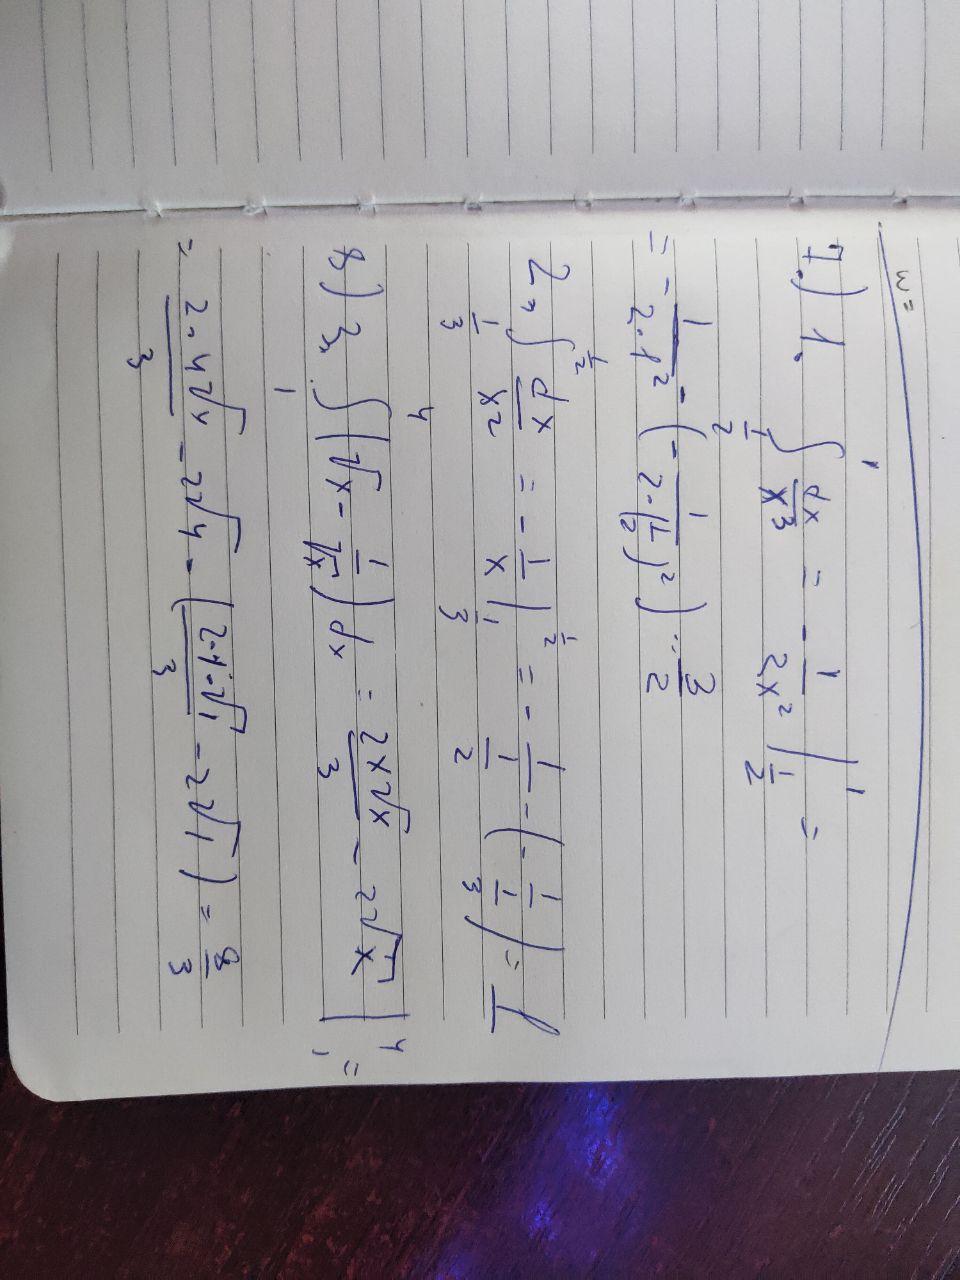 m =
7.) 1. ∫_{1/2}^{1} dx/x³ = - 1/2x² |_{1/2}^{1} =
= - 1/2·1² - (- 1/2·(1/2)²) = 3/2
2. ∫_{1/3}^{1/2} dx/x² = - 1/x |_{1/3}^{1/2} = - 1/(1/2) - (- 1/(1/3)) = 1
8) 3. ∫_{1}^{4} (√x - 1/√x) dx = 2x√x/3 - 2√x |_{1}^{4} =
= 2·4√4/3 - 2√4 - (2·1·√1/3 - 2√1) = 8/3